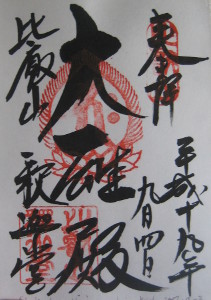 奉拝
平成十九年
九月四日
大雄殿
比叡山 釈迦堂